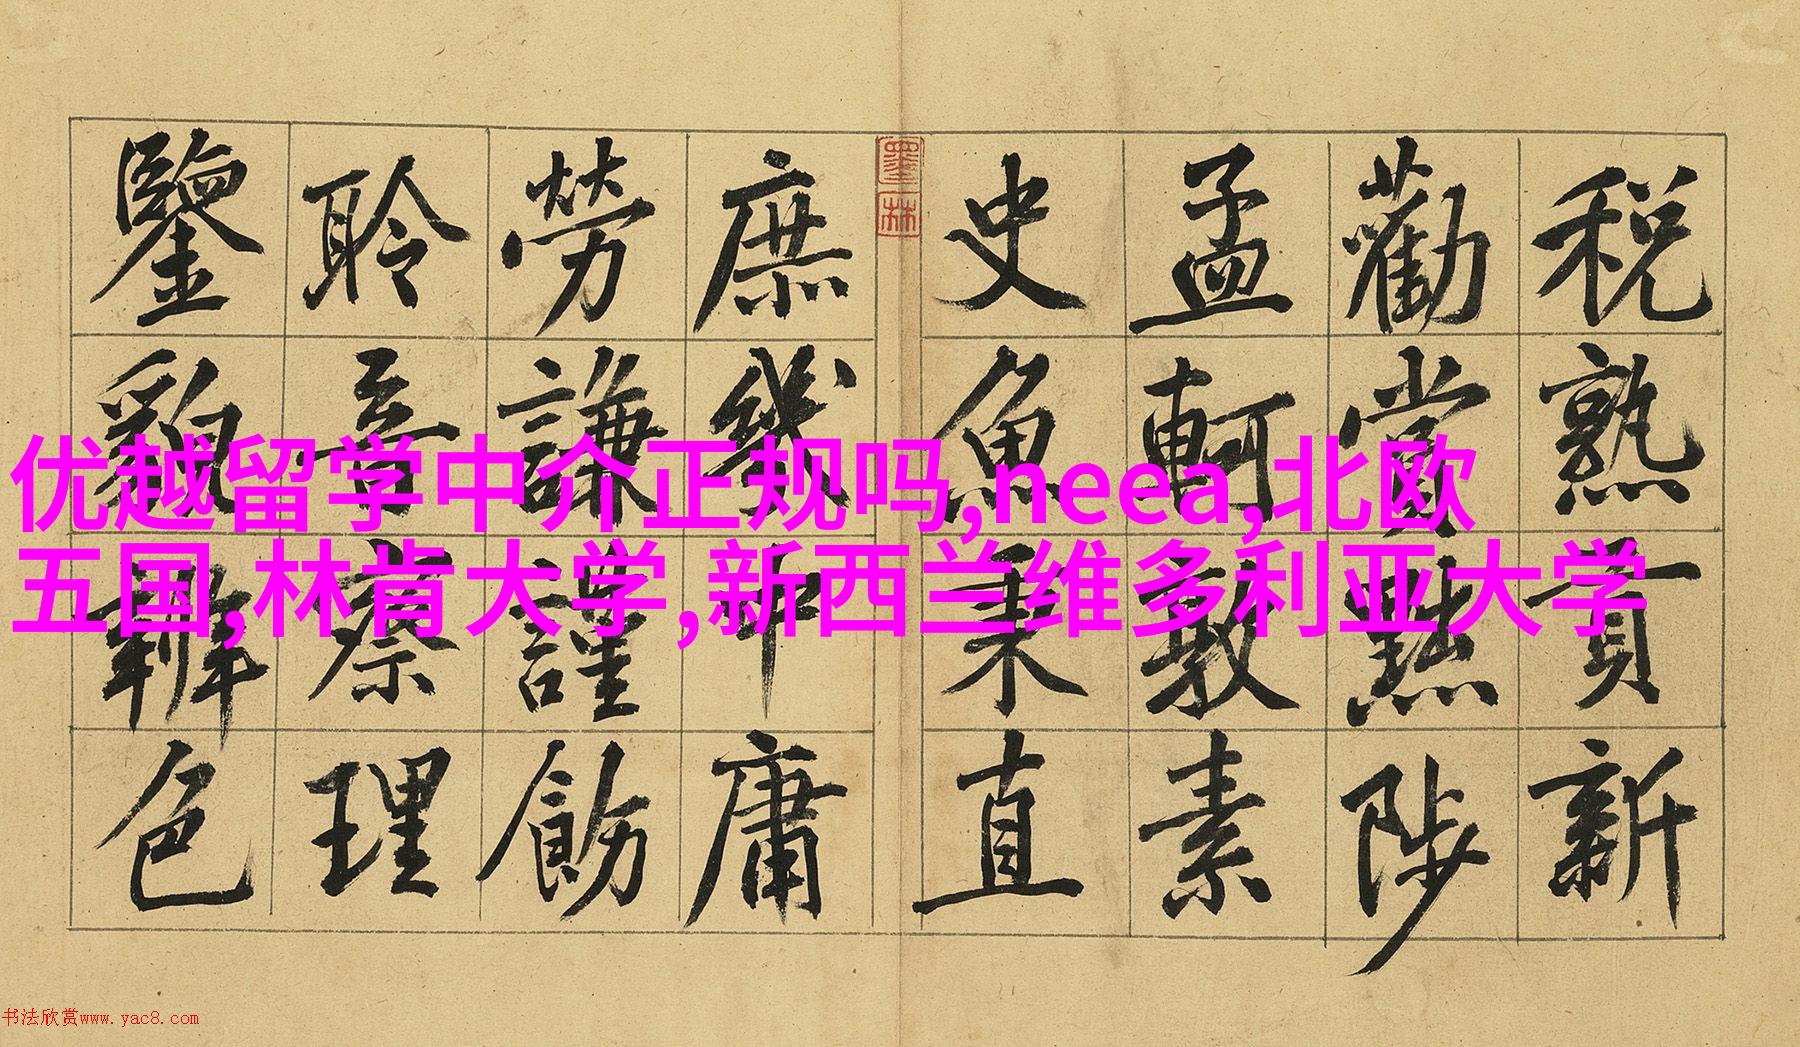 稅熟貢新
勸賞黜陟
孟軻敦素
史魚秉直
庶幾中庸
勞謙謹飭
聆音察理
鑒貌辨色
墨林
优越留学中介正规吗,neea,北欧
五国,林肯大学,新西兰维多利亚大学
书法欣赏www.yac8.com